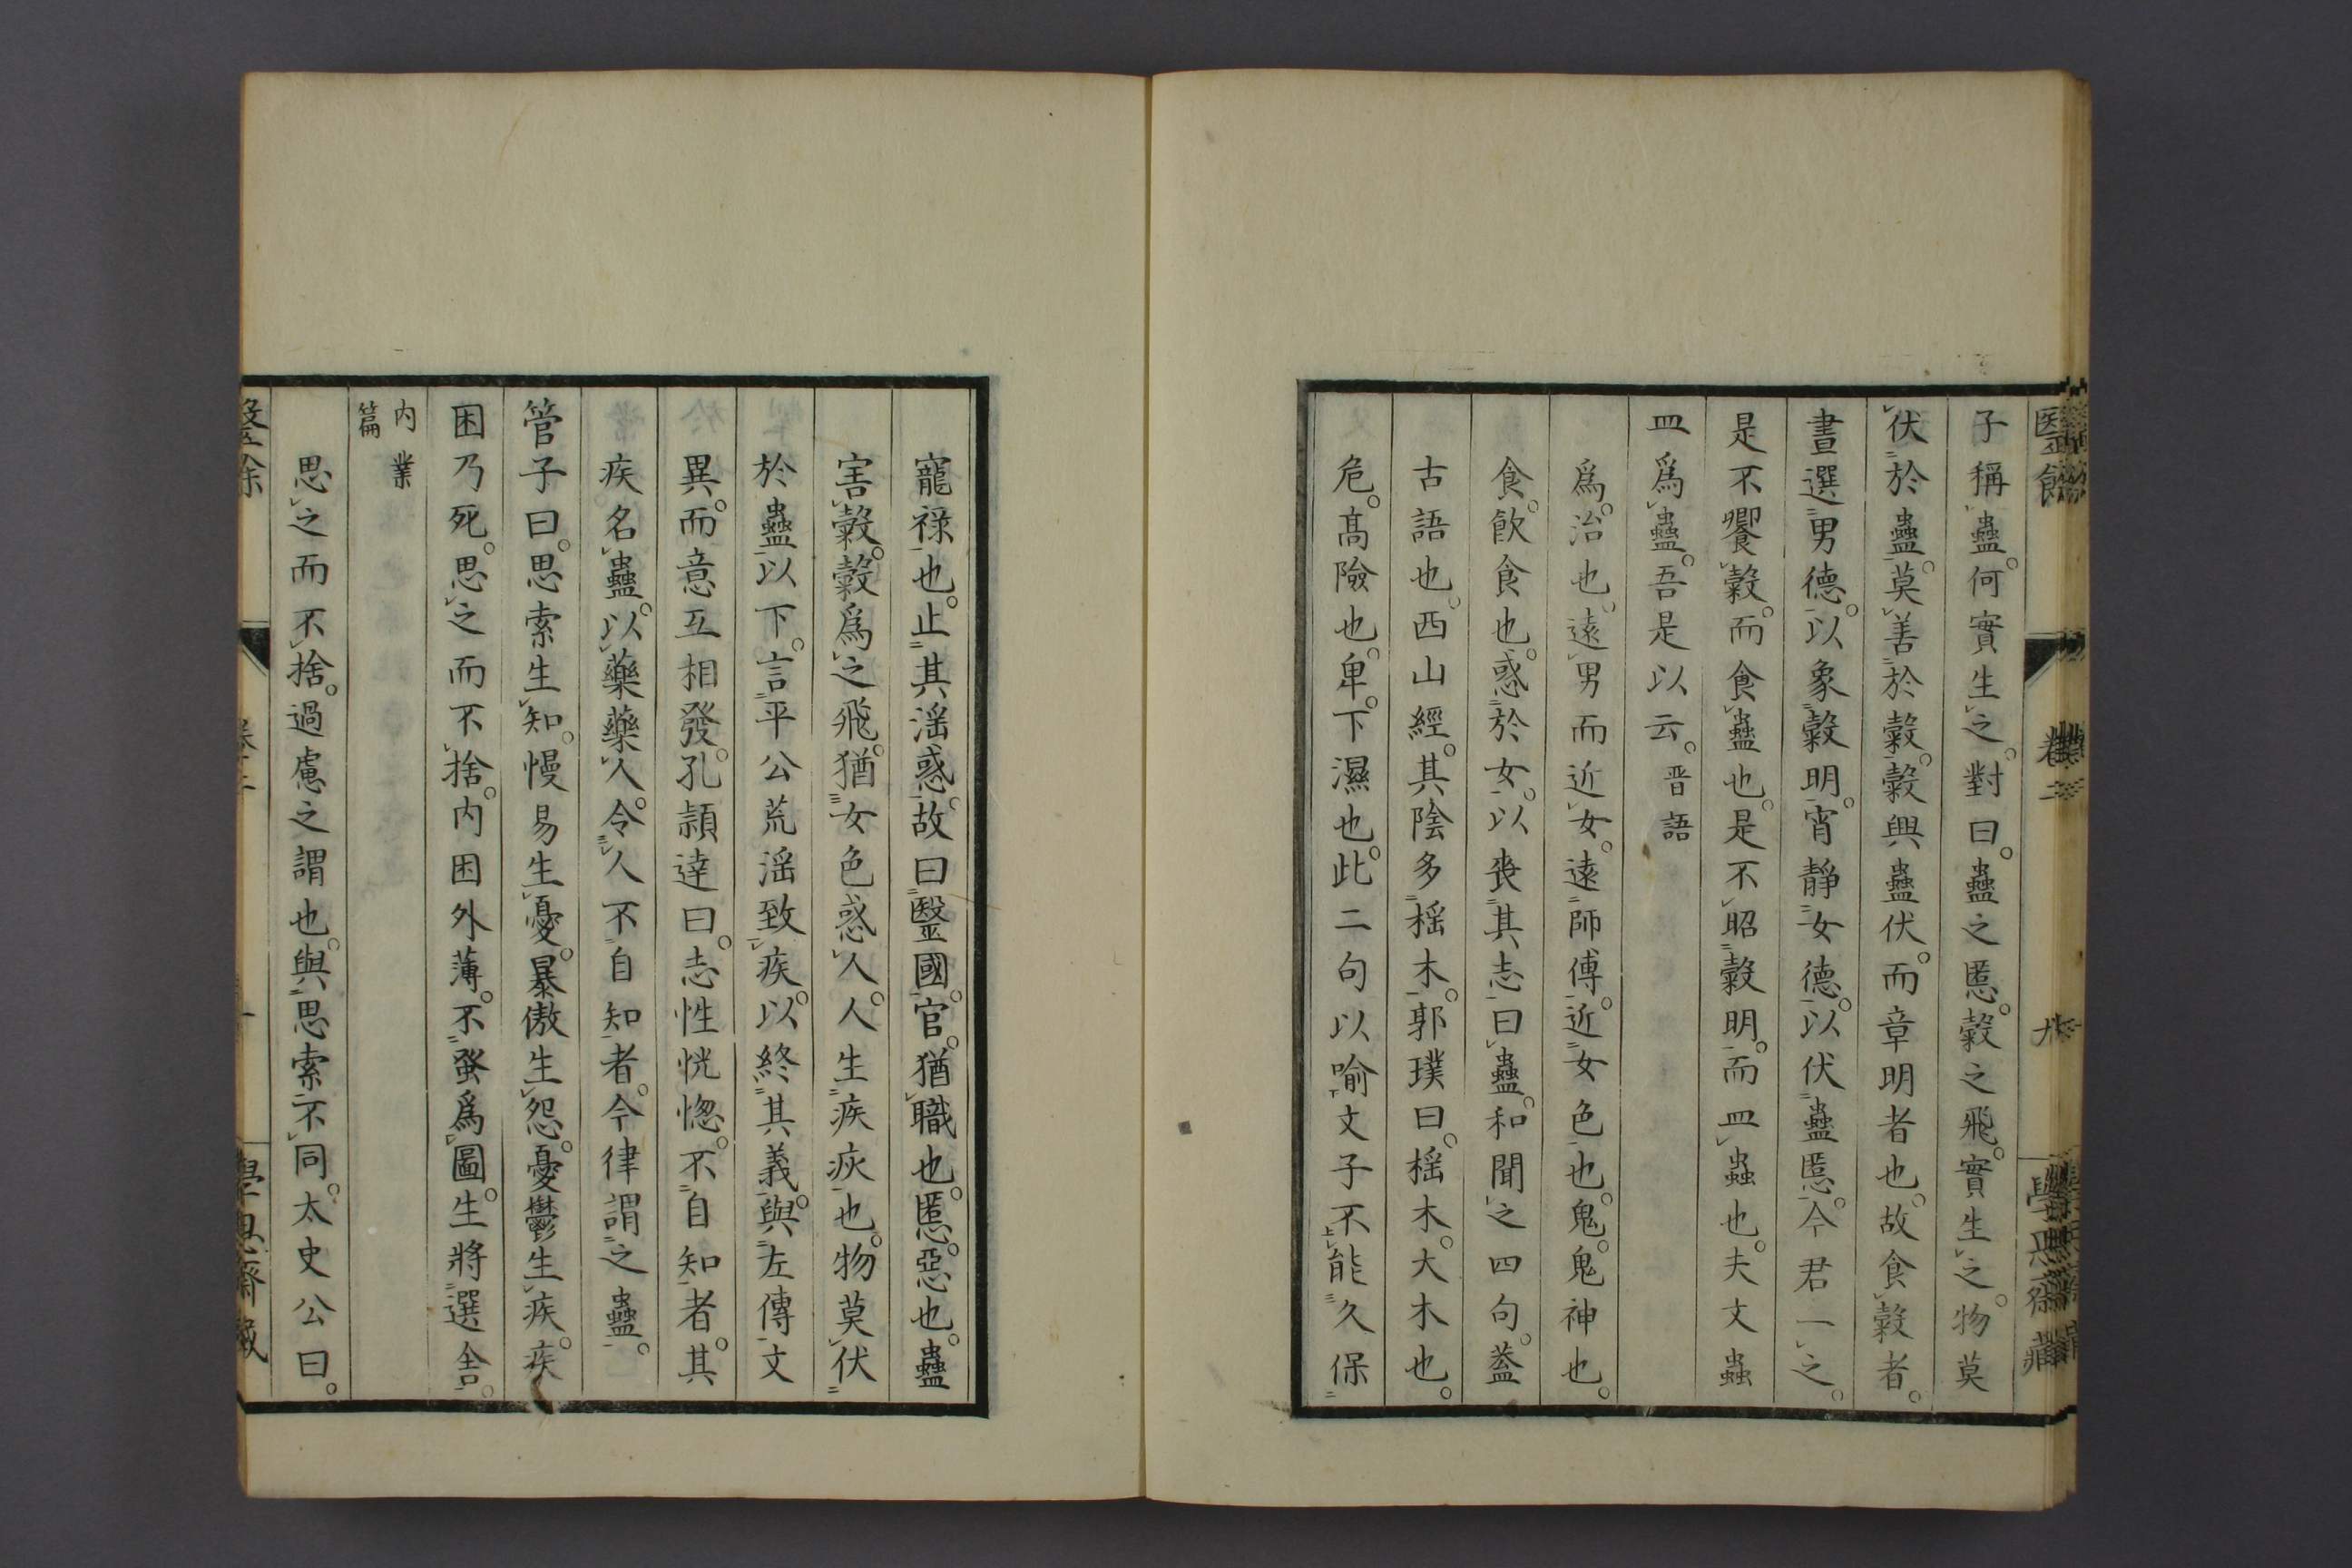 醫餘 卷二 九 學思齋藏
子稱蠱。何實生之。對曰。蠱之慝。穀之飛。實生之。物莫
伏於蠱。莫善於穀。穀興蠱伏。而章明者也。故食穀者。
晝選男德。以象穀明。宵靜女德。以伏蠱慝。今君一之。
是不饗穀。而食蠱也。是不昭穀明。而皿蟲也。夫文蟲
皿爲蠱。吾是以云。晋語
爲。治也。遠男而近女。遠師傅。近女色也。鬼。鬼神也。
食。飲食也。惑於女。以喪其志。曰蠱。和聞之四句。葢
古語也。西山經。其陰多榣木。郭璞曰。榣木。大木也。
危。髙險也。卑。下濕也。此二句以喻文子不能久保
寵祿也。止其滛惑。故曰醫國。官。猶職也。慝。惡也。蠱
害穀。穀爲之飛。猶女色惑人。人生疾疢也。物莫伏
於蠱以下。言平公荒滛致疾。以終其義。與左傳文
異。而意互相發。孔頴達曰。志性恍惚。不自知者。其
疾名蠱。以藥藥人。令人不自知者。今律謂之蠱。
管子曰。思索生知。慢易生憂。暴傲生怨。憂鬱生疾。疾
困乃死。思之而不捨。内困外薄。不蚤爲圖。生將選舍。
内業
篇
思之而不捨。過慮之謂也。與思索不同。太史公曰。